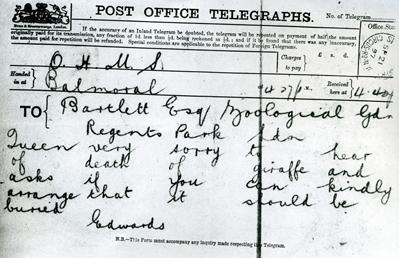 POST OFFICE TELEGRAPHS.
No. of Telegram
If the accuracy of an Inland Telegram be doubted, the telegram will be repeated on payment of half the amount
originally paid for its transmission, any fraction of 1d. less than ½d. being reckoned as ½d.; and if it be found that there was any inaccuracy,
the amount paid for repetition will be refunded. Special conditions are applicable to the repetition of Foreign Telegrams.
Office
Charges to pay
£ s. d.
O H M S
Handed in at
Balmoral
Received here at
4.40
TO
Bartlett Esq Zoological Gdn
Regents Park Ldn
Queen very sorry to hear
of death of giraffe and
asks if you can kindly
arrange that it should be
buried
Edwards
N.B.—This Form must accompany any inquiry made respecting this Telegram.